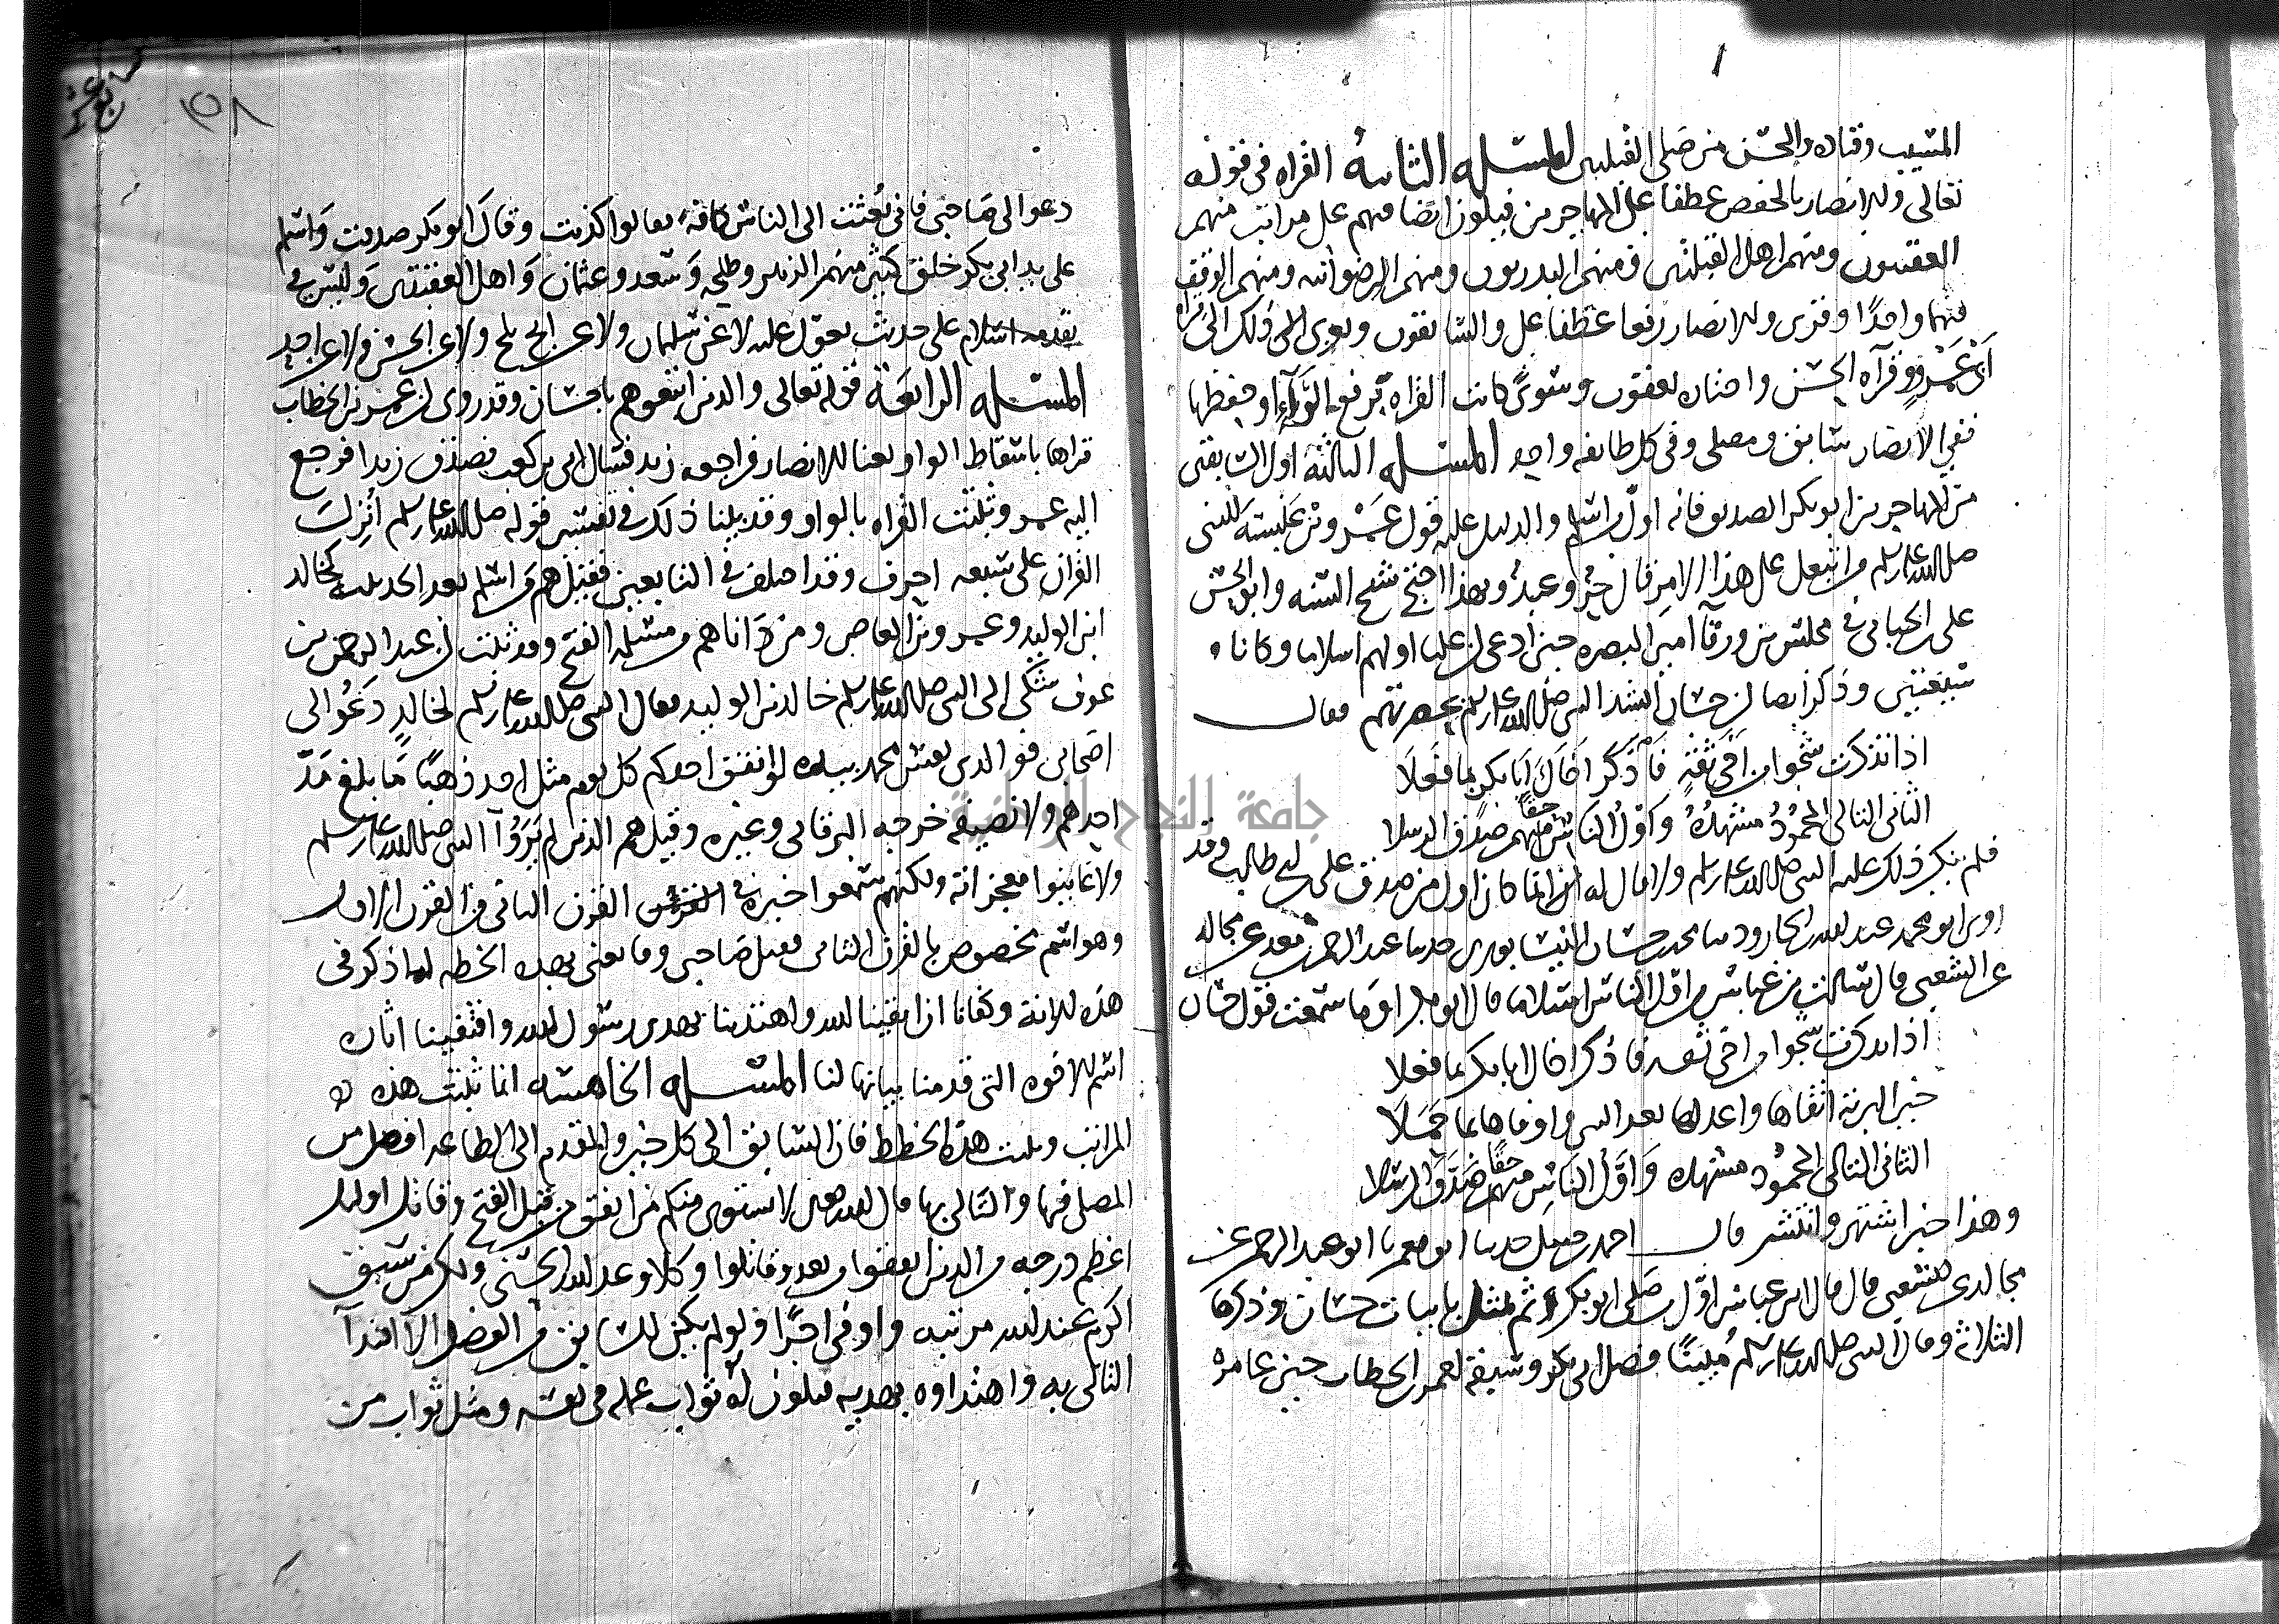 المسيب وقتاده والحسن من صلى القبلتين المسله الثانية القراه في قوله
تعالى والانصار بالخفض عطفا على المهاجرين فيكون ايضا منهم على مراتب منهم
العقبيون ومنهم اهل القبلتين ومنهم البدريون ومنهم الرضوانيه ومنهم الوقف
فيها واحدًا وقرى والانصار رفعا عطفا على والسابقون ويعزى الى ذلك الى قراه
ابن عَمْرو وقرآه الحسن واختاره يعقوب وسوىً كانت القراه برفع الرآء او خفضها
ففي الانصار سابق ومصلى وفي كل طايفه واحد المسله الثالثة اول السابقين
من المهاجرين ابو بكر الصديق فانه اول من اسلم والدليل عليه قول عَمْرو بن عَبسه للنبي
صلى الله عليه وسلم من اتبعك على هذا الامر قال حُرٌ وعبدٌ وبهذا احتج شيخ السنه وابو الحسن
على الجبايى في مجلس بن ورقآ امير البصره حين ادعى ان عليا اولهم اسلاما وكانا
شيعيين وذكر ايضا ان حسان انشد النبي صلى الله عليه وسلم بحضرتهم فقال
اذا تذكرت شجوا من اخى ثقةٍ فاذكر اخاك ابا بكر بما فعلا
الثانى التالى المحمُودُ مشهدُهُ واوّلُ الناسِ حقا منهم صدّق الرسلا
فلم ينكر ذلك عليه النبي صلى الله عليه وسلم ولا قال له ان انما كان اول من صدق على بن ابي طالب وقد
روى ابو محمد عبد لله بن الجارود حدثنا محمد بن حسان النيسابورى حدثنا عبد الرحمن بن معد عن مجالد
عن الشعبي قال سالت بن عباس من اول الناس اسلاما قال ابو بكر اوَ ما سمعت قول حسان
اذا تذكرت شجوا من اخى ثقه فاذكر اخاك ابا بكر بما فعلا
خير البرية اتقاها واعدلها بعد النبي واوفاها بما حَمَلَا
الثانى التالى المحمُود مشهده وَاوّلُ الناسِ حقا منهم صَدّقَ الرسلا
وهذا خبر اشتهر وانتشر قال احمد بن حنبل حدثنا ابو معمر نا ابو عبد الرحمن عن
مجالد عن الشعبي قال قال ابن عباس اوّل من صَلى ابو بكر ثم تمثل بابيات حسان وذكرها
الثلاث وقال النبي صلى الله عليه وسلم مُبينًا فضل ابي بكر وسبقه لعمر بن الخطاب حين غامره
١٥٨
دعوا لى صَاحبى فانى بُعثت الى الناس كافة فقالوا كذبت وقال ابو بكر صدقت وَاسلم
على يد ابي بكر خلق كثير منهم الزبير وطلحه وسعد وعثمان وَاهل العقبتين وَليس في
تقدمه اسلام على حديث يعول عليه لا عن سلمان ولا عن ولا عن الحسن ولا عن احد
المسله الرابعَة قوله تعالى والذين اتبعوهم باحسان وقد روى ان عمر بن الخطاب
قراها باسقاط الواو نعتا للانصار فراجعه زيد فسال ابي بن كعب فصدق زيدا فرجع
اليه عمر وثبتت القراه بالواو وقد بينا ذلك في تفسير قوله صلى الله عليه وسلم اُنزِلت
القران على سبعه احرف وقد اختلف في التابعين فقيل هم من اسلم بعد الحديبية كخالد
ابن الوليد وعمرو بن العاص ومن دَاناهم من مسلمه الفتح وقد ثبت ان عبد الرحمن بن
عوف شكى الى النبي صلى الله عليه وسلم خالد بن الوليد فقال النبي صلى الله عليه وسلم لخالدٍ دَعُوا لى
اصحابى فو الذى نفس محمد بيده لو انفق احدكم كل يوم مثل احد ذهبًا مَا بلغ مَدّ
احدهم ولا نصيفه خرجه البرقانى وغيره وقيل هم الذين لم يَرَوُا النبي صلى الله عليه وسلم
ولا عاينوا معجزاته ولكنهم سمعوا خبره في القرن الثانى من القرن الاول
وهو اسم مخصوص بالقرن الثانى فقيل صَاحبى وما يعنى بهذه الخطه لما ذكر في
هذه الاية وكفانا ان اتقينا لله واهتدينا بهدى رسول لله واقتفينا اثاره
اسم الاخوه التى قدمنا بيانها لنا المسله الخامسه انما ثبتت هذه
المراتب وبينت هذه الخطط فان السابق الى كل خير والمتقدم الى الطاعه افضل من
المصلى فيها والتالى بها قال لله تعالى لا يستوى منكم من انفق من قبل الفتح وقاتل اوليك
اعظم درجه من الذين انفقوا من بعد وقاتلوا وكلا وعد لله الحسنى ولكن من سبق
اكرم عند لله مرتبه واوفى اجرًا ولو لم يكن للسابق من الفضل الا اقتدآ
التالى به واهتداوه بهديه فيكون له ثواب عمله في نفسه ومثل ثواب من
جامعة النجاح الوطنية